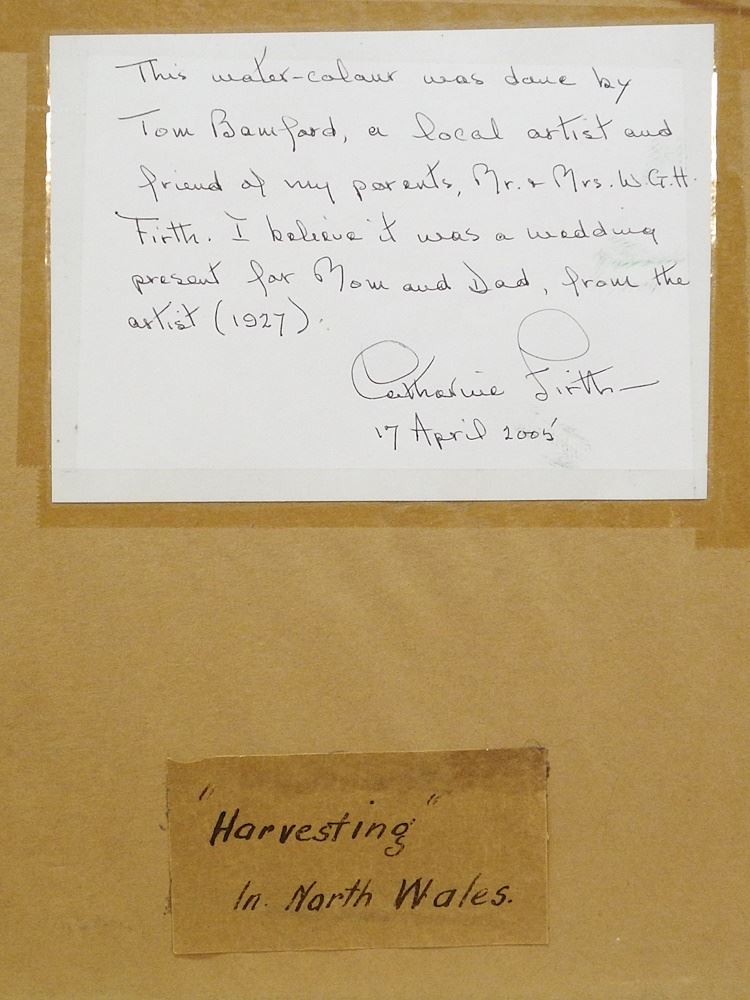 This water-colour was done by
Tom Bamford, a local artist and
friend of my parents, Mr. + Mrs. W.G.H.
Firth. I believe it was a wedding
present for Mom and Dad, from the
artist (1927).
Catharine Firth
17 April 2005
"Harvesting"
In North Wales.